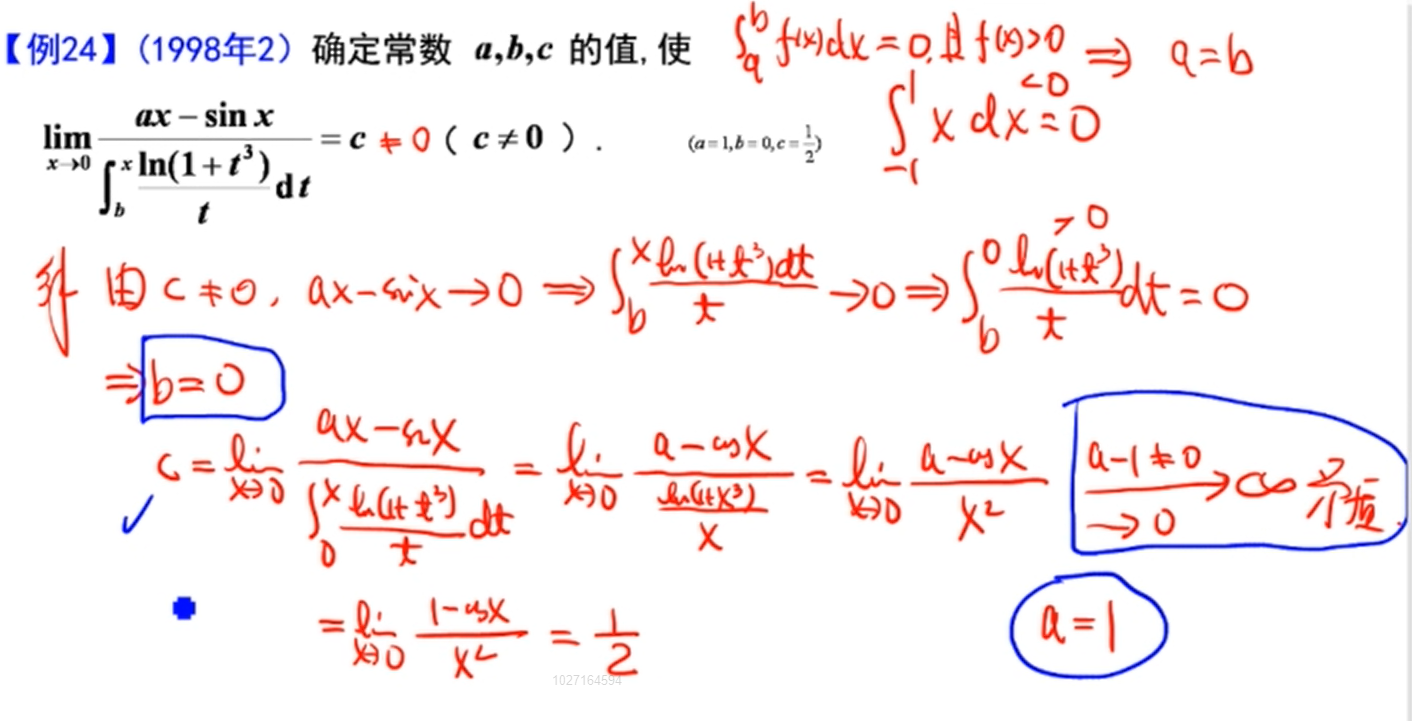 【例24】(1998年2) 确定常数 a,b,c 的值,使
∫_a^b f(x)dx = 0, 且 f(x)>0 ⇒ a=b
<0
lim_{x→0} (ax − sin x)/(∫_b^x ln(1+t³)/t dt) = c ≠ 0 ( c≠0 ) .
(a=1,b=0,c=1/2)
∫_{-1}^1 x dx = 0
解 由 c≠0, ax−sinx→0 ⇒ ∫_b^x ln(1+t³)dt/t →0 ⇒ ∫_b^0 ln(1+t³)/t dt = 0
>0
⇒ b=0
c = lim_{x→0} (ax−sinx)/(∫_0^x ln(1+t³)/t dt) = lim_{x→0} (a−cosx)/(ln(1+x³)/x) = lim_{x→0} (a−cosx)/x² a−1≠0 →0 → ∞ 矛盾.
✓
= lim_{x→0} (1−cosx)/x² = 1/2
a=1
1027164594